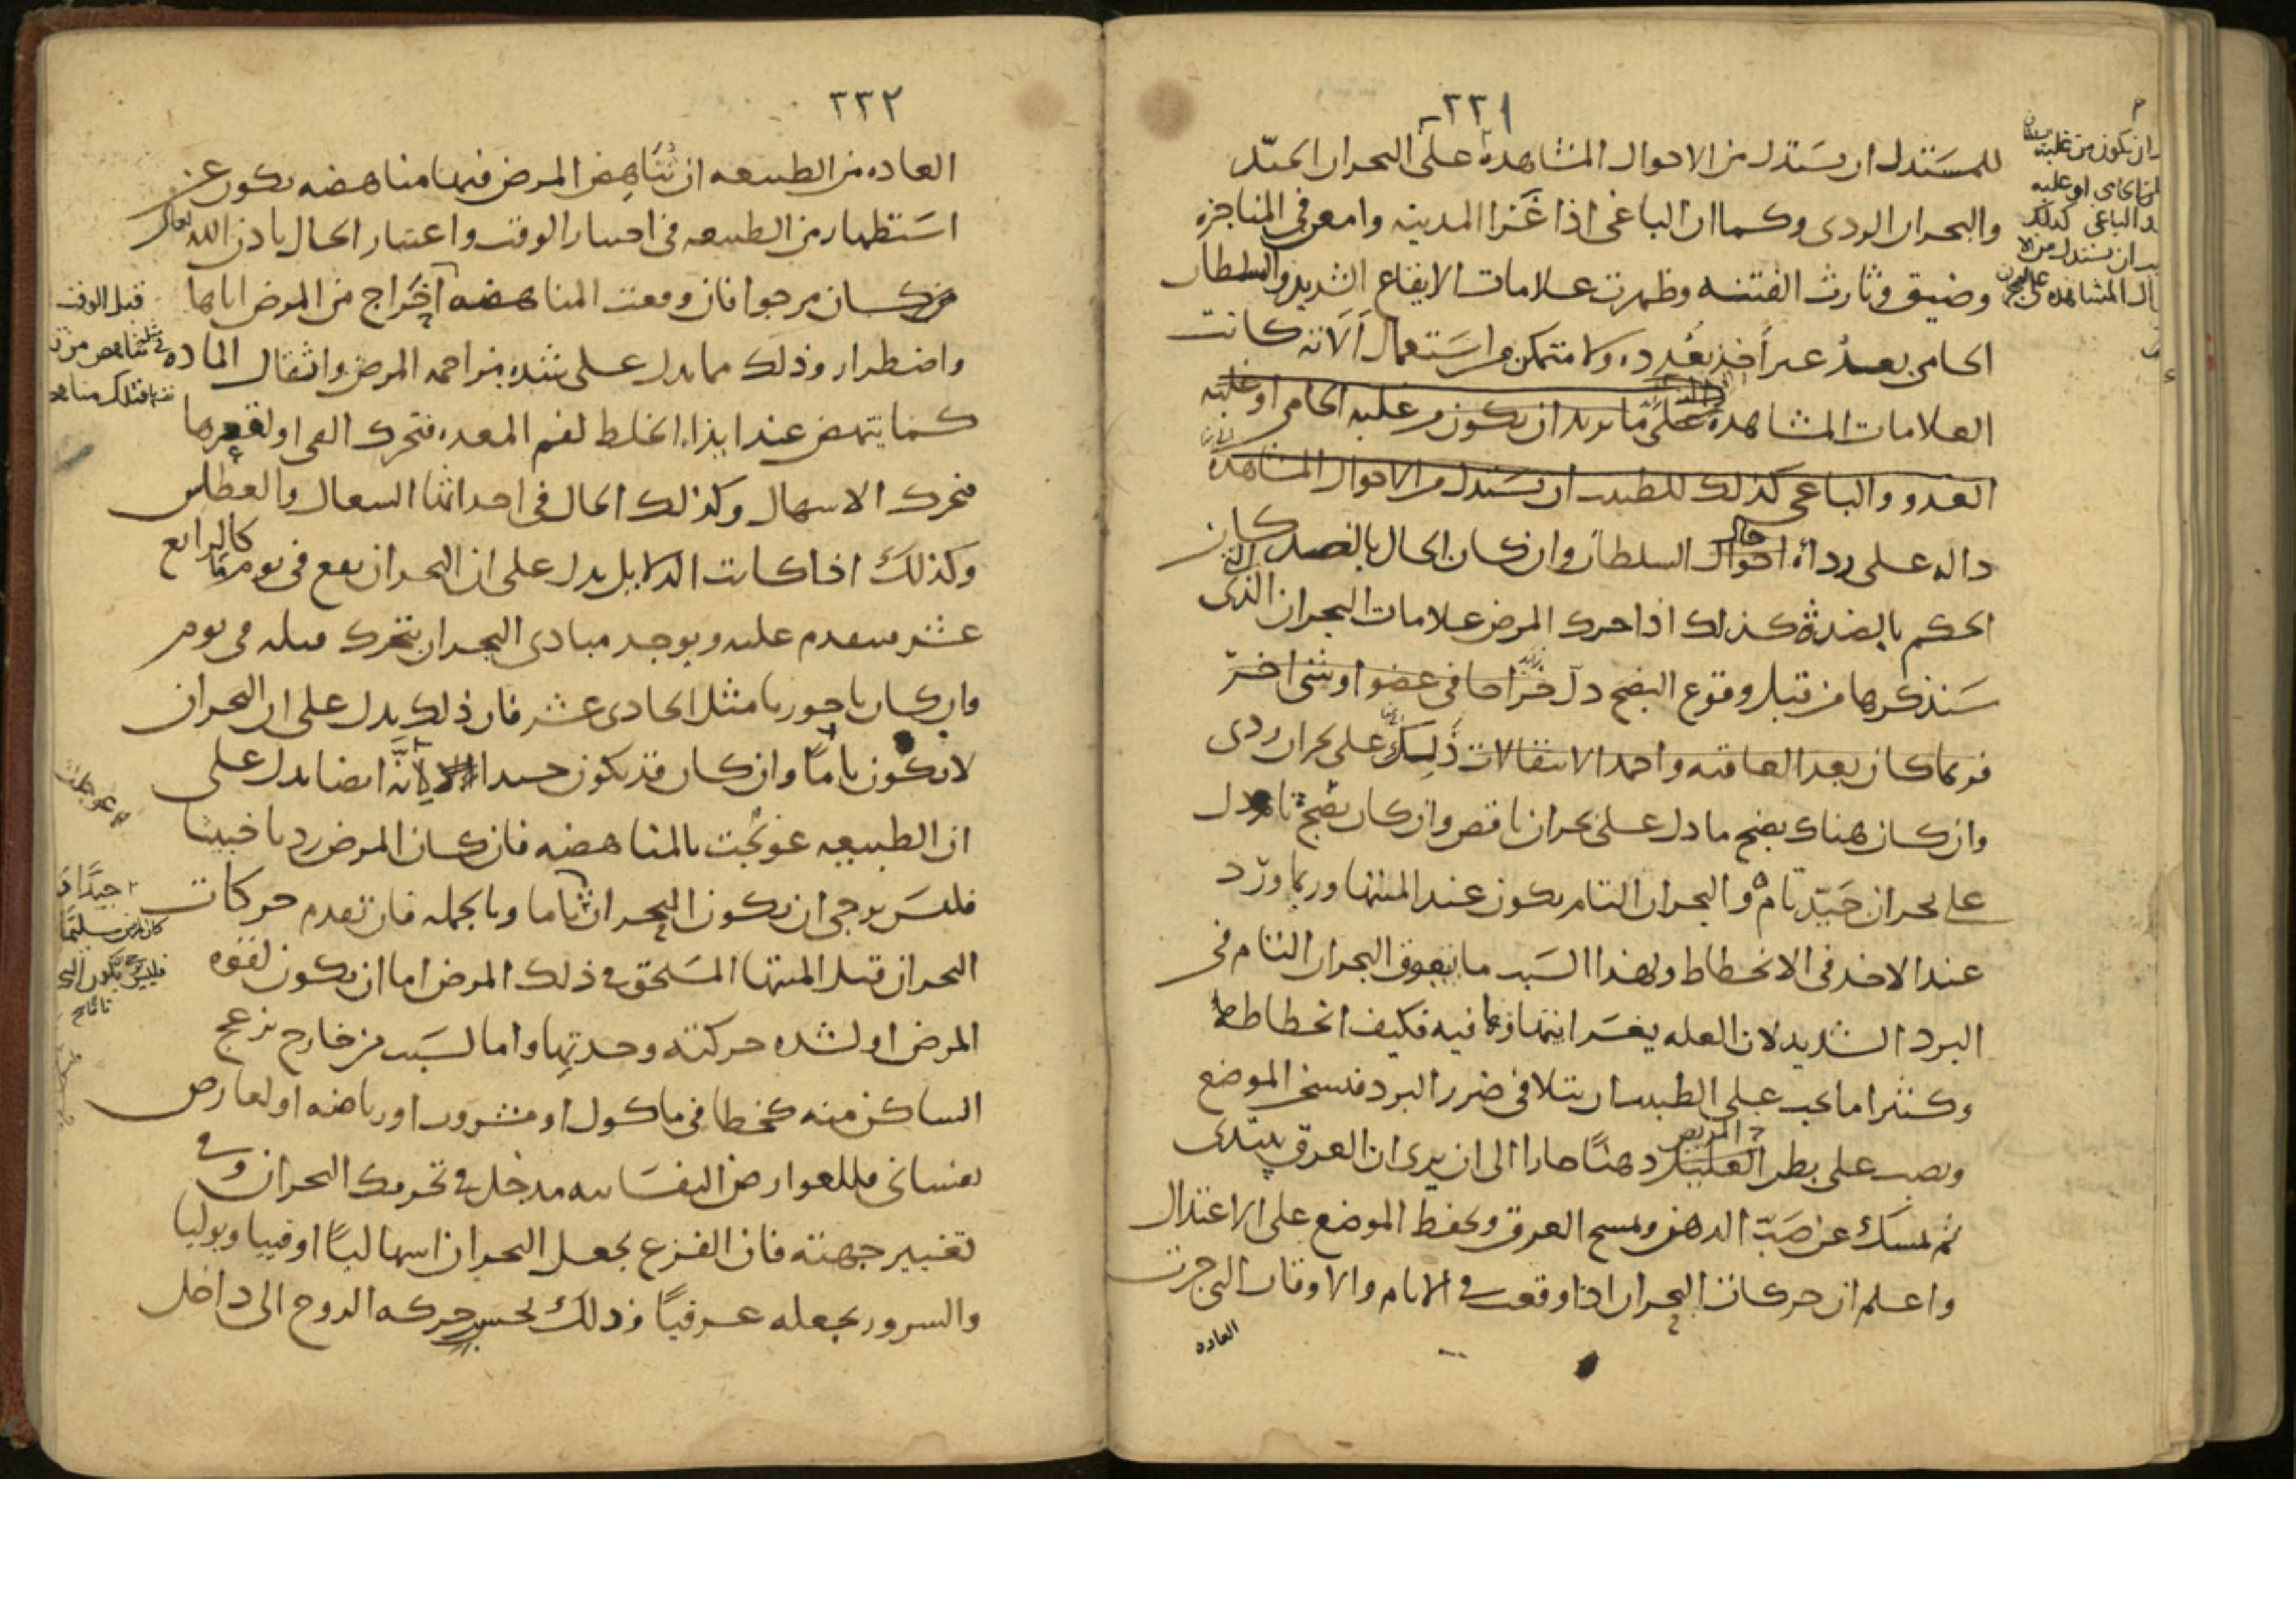 ٢٣١
للمستدل ان يستدل من الاحوال المشاهدة على البحران الجيّد
والبحران الردى وكما ان الباغى اذا غَزا المدينه وامعن فى المناجزه
وضيق وثارت الفتنه وظهرت علامات الايقاع الشديد والسلطان
الحامى بعدُ غير أخذ بعُدده ولا متمكن من استعمال آلاته كانت
العلامات المشاهدة على ما يريد ان يكون من غلبه الحامى او غلبه
العدو والباغى كذلك للطبيب ان يستدل من الاحوال المشاهدة
داله على رداة احوال السلطان وان كان الحال بالضد كان
الحكم بالضد كذلك اذا حرك المرض علامات البحران الذى
سَنذكرها من قبل وقوع النضج دل
فربما كان بعد العاقبه واحمد الانتقالات ذلك على بحران ردى
وان كان هناك نضج ما دل على بحران ناقص وان كان نضج تام دل
على بحران جَيّد تام والبحران التام يكون عند المنتها وربما ورد
عند الاخذ فى الانحطاط ولهذا السَبب ما يعوق البحران التام فى
البرد الشديد لان العله يعسَر انتهاؤها فيه فكيف انحطاطها
وكثيرا ما يجب على الطبيب ان يتلافى ضرر البرد فيسخن الموضع
ويصب على بطن العليل دهنًا حارا الى ان يرى ان العرق يبتدى
ثم يمسَك عن صَبّ الدهن ويمسح العرق ويحفظ الموضع على الاعتدال
واعلم ان حركات البحران اذا وقعت فى الايام والاوقات التى جرت
العاده
ان يكون من غلبه
الحامى او غلبه
الباغى كذلك
ان يستدل من الا
المشاهده على البحران
٢٣٢
العاده من الطبيعه ان تُنَاهِض المرض فيها مناهضه يكون عن
استَظهار من الطبيعه فى اختيار الوقت واعتبار الحال باذن الله تعالى
كان مرجوا فان وقعت المناهضه اخراج من المرض اياها
واضطرار وذلك مما يدل على شده مزاحمه المرض واثقال الماده
كما ينهض عند ايذاء الخلط لفم المعده فتحرك القى او لقعرها
فتحرك الاسهال وكذلك الحال فى احداثها السعال والعطاس
وكذلك اذا كانت الدلايل يدل على ان البحران يقع فى يوم ما كالرابع
عشر فيتقدم عليه ويوجد مبادى البحران يتحرك قبله فى يوم
وان كان باحوريا مثل الحادى عشر فان ذلك يدل على ان البحران
لا يكون تامًا وان كان قد يكون جيدا لانَّه ايضا يدل على
ان الطبيعه عوجلت بالمناهضه فان كان المرض رديا خبيثا
فليسَ يرجى ان يكون البحران تاما وبالجمله فان تقدم حركات
البحران قبل المنتها المسَتحق فى ذلك المرض اما ان يكون لقوه
المرض او لشده حركته وحدتها واما لسَبب من خارج يزعج
الساكن منه كخطا فى ماكول او مشروب او رياضه او لعارض
نفسانى فللعوارض النفسَانيه مدخل فى تحريك البحران وفى
تغيير جهته فان الفزع يجعل البحران اسهاليًا او قييا وبوليا
والسرور يجعله عرقيًا وذلك بحسب حركه الروح الى داخل
قبل الوقت
عوجلت
جيدًا
كان المرض سليمًا
فليس يكون البحران
تاما صح